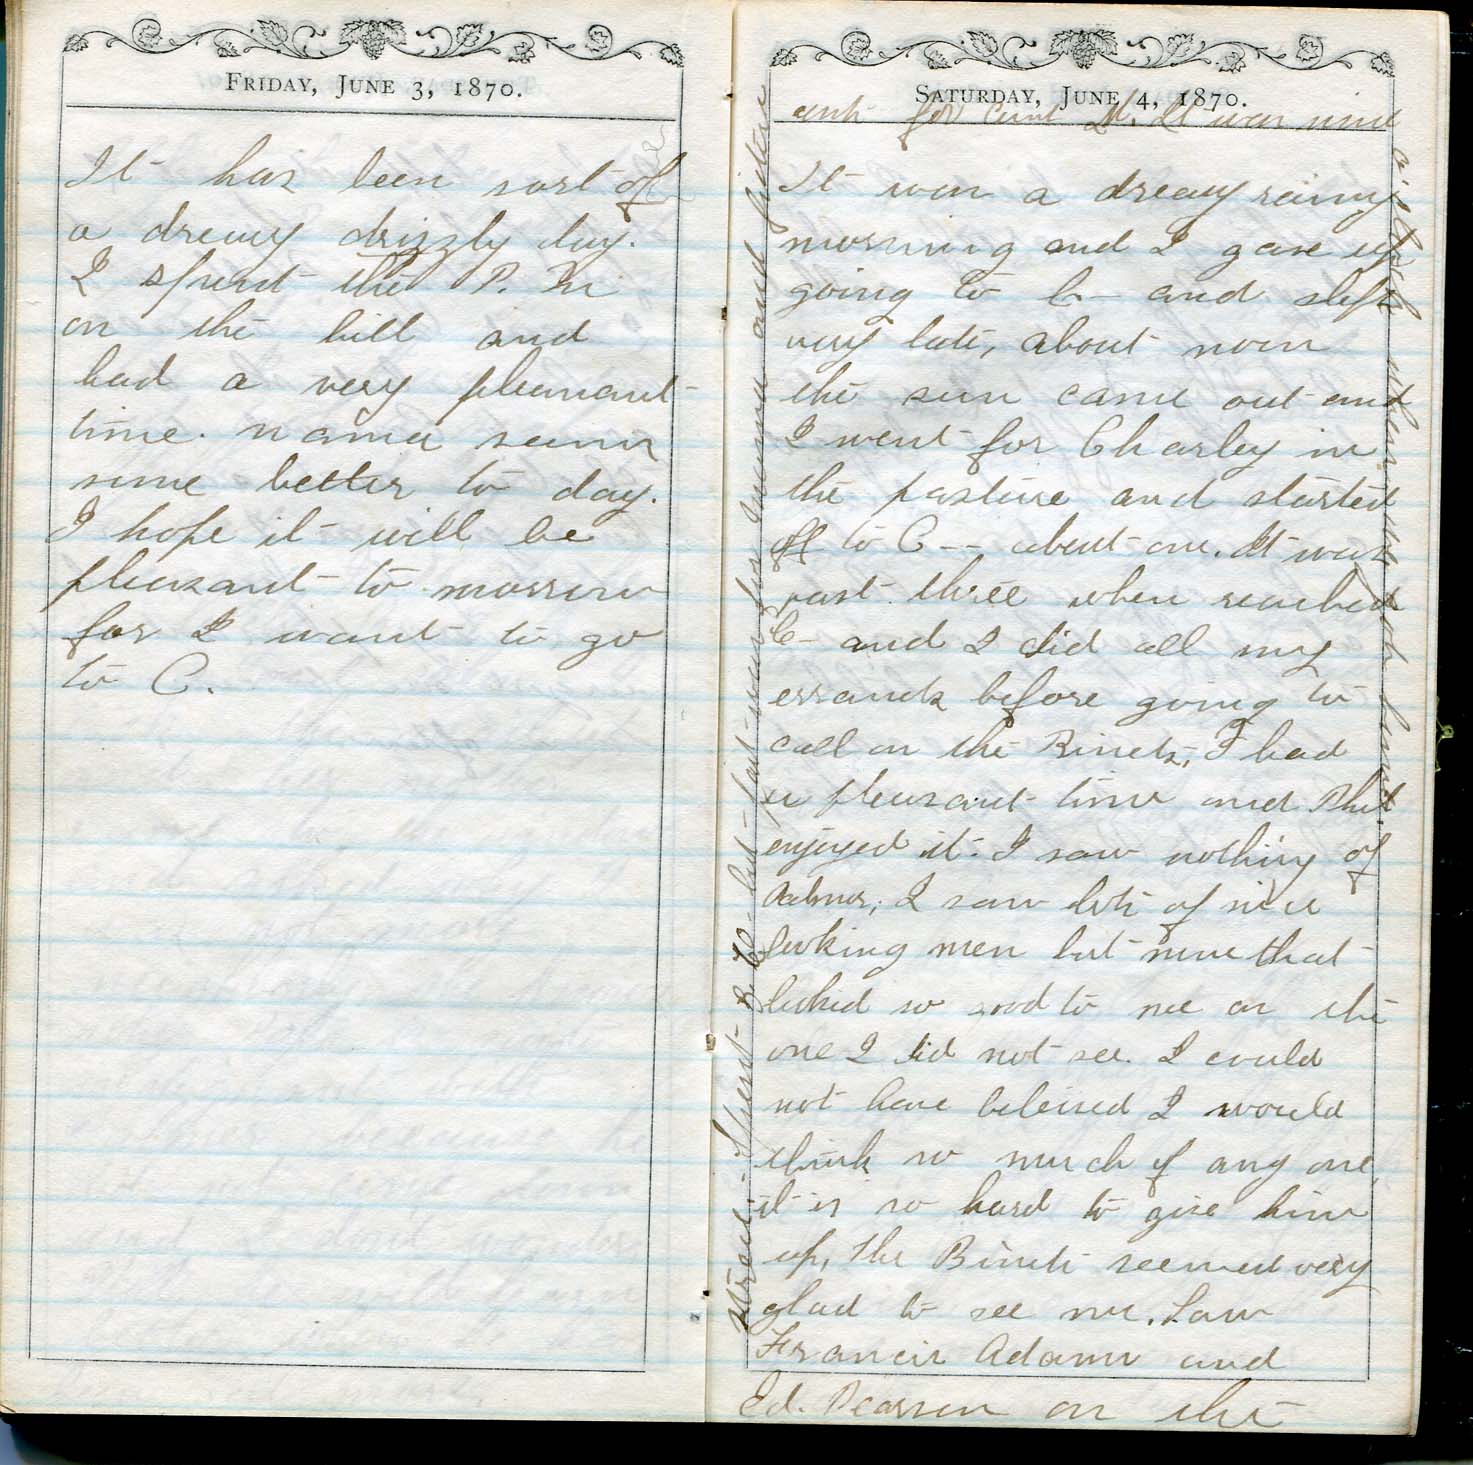 FRIDAY, JUNE 3, 1870.
It has been sort of
a dreary drizzly day.
I spent the P. M
on the hill and
had a very pleasant
time. Mama seems
some better to day.
I hope it will be
pleasant to morrow
for I want to go
to C.
SATURDAY, JUNE 4, 1870.
It was a dreary rainy
morning and I gave up
going to C— and slept
very late, about noon
the sun came out and
I went for Charley in
the pasture and started
off to C-- about one. It was
past three when reached
C— and I did all my
errands before going to
call on the Binets, I had
a pleasant time and
enjoyed it. I saw nothing of
I saw lots of nice
looking men but none that
looked so good to me as the
one I did not see. I could
not have beleived I would
think so much of any one,
it is so hard to give him
up, the Binets seemed very
glad to see me. Saw
Francis Adams and
Ed. Pearson on the
street. Spent $ 6 but part was for Mamma and
for Aunt M. It was nine
o'clock when we